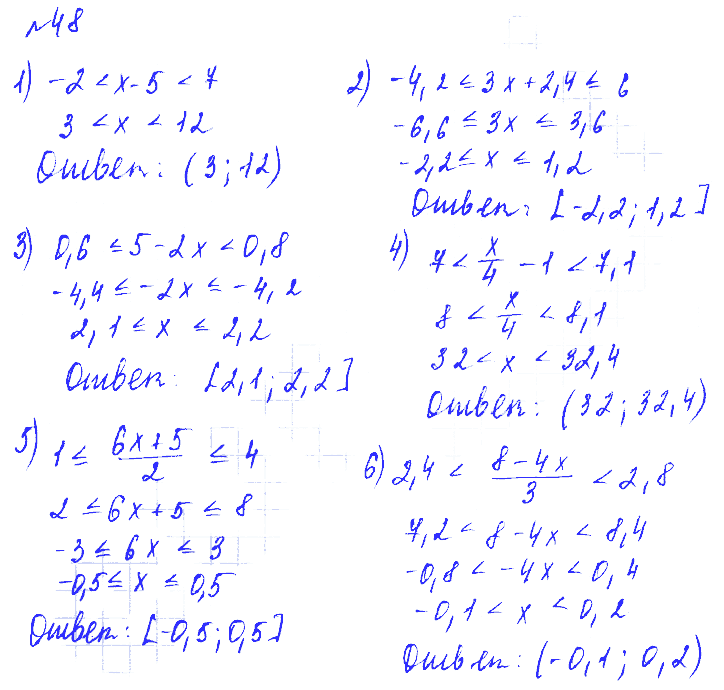 №48
1) -2 < x - 5 < 7
3 < x < 12
Ответ: (3; 12)
2) -4,2 ≤ 3x + 2,4 ≤ 6
-6,6 ≤ 3x ≤ 3,6
-2,2 ≤ x ≤ 1,2
Ответ: [-2,2; 1,2]
3) 0,6 ≤ 5 - 2x < 0,8
-4,4 ≤ -2x ≤ -4,2
2,1 ≤ x ≤ 2,2
Ответ: [2,1; 2,2]
4) 7 < x/4 - 1 < 7,1
8 < x/4 < 8,1
32 < x < 32,4
Ответ: (32; 32,4)
5) 1 ≤ (6x + 5)/2 ≤ 4
2 ≤ 6x + 5 ≤ 8
-3 ≤ 6x ≤ 3
-0,5 ≤ x ≤ 0,5
Ответ: [-0,5; 0,5]
6) 2,4 < (8 - 4x)/3 < 2,8
7,2 < 8 - 4x < 8,4
-0,8 < -4x < 0,4
-0,1 < x < 0,2
Ответ: (-0,1; 0,2)